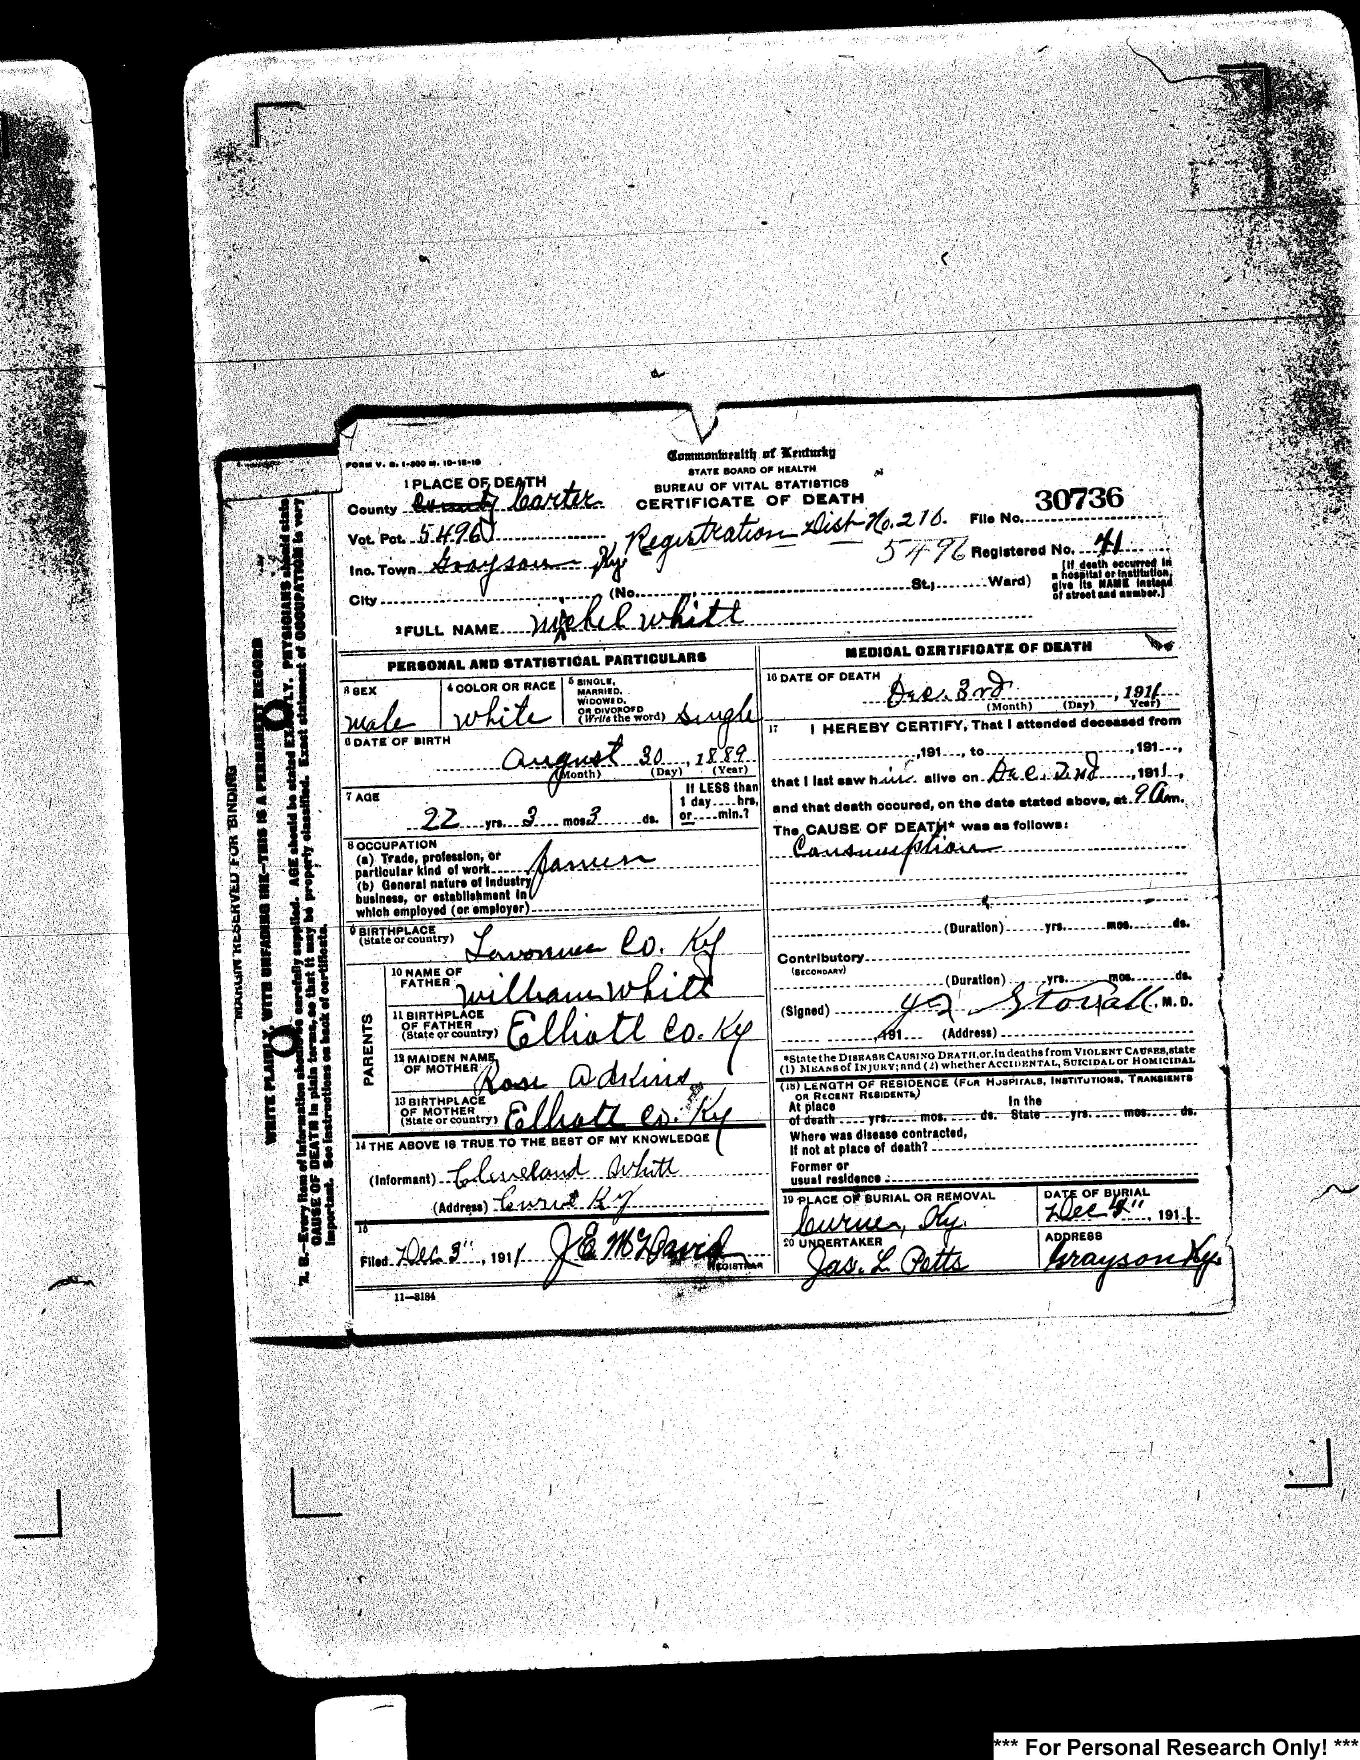 FORM V. S. 1-500 M. 10-18-10
Commonwealth of Kentucky
STATE BOARD OF HEALTH
BUREAU OF VITAL STATISTICS
CERTIFICATE OF DEATH
1 PLACE OF DEATH
County County Carter
Vot. Pct. 5496
Registration Dist No. 210.
File No. 30736
Inc. Town Grayson Ky.
5496 Registered No. 41
City (No. St.; Ward)
[If death occurred in
a hospital or institution,
give its NAME instead
of street and number.]
2 FULL NAME Michel Whitt
PERSONAL AND STATISTICAL PARTICULARS
3 SEX
male
4 COLOR OR RACE
White
5 SINGLE,
MARRIED,
WIDOWED,
OR DIVORCED
(Write the word) Single
6 DATE OF BIRTH
August 30, 1889
(Month) (Day) (Year)
7 AGE
22 yrs. 3 mos. 3 ds.
If LESS than
1 day....hrs,
or....min.?
8 OCCUPATION
(a) Trade, profession, or
particular kind of work
(b) General nature of Industry
business, or establishment in
which employed (or employer)
9 BIRTHPLACE
(State or country) Co. Ky
PARENTS
10 NAME OF
FATHER William Whitt
11 BIRTHPLACE
OF FATHER
(State or country) Elliott Co. Ky
12 MAIDEN NAME
OF MOTHER Rose Adkins
13 BIRTHPLACE
OF MOTHER
(State or country) Elliott Co. Ky
14 THE ABOVE IS TRUE TO THE BEST OF MY KNOWLEDGE
(Informant) Cleveland Whitt
(Address) Ky
15
Filed Dec 3", 1911 J E McDavid
REGISTRAR
11—3184
MEDICAL CERTIFICATE OF DEATH
16 DATE OF DEATH
Dec. 3rd, 1911
(Month) (Day) Year)
17 I HEREBY CERTIFY, That I attended deceased from
,191 , to ,191 ,
that I last saw him alive on Dec. 2nd, 1911,
and that death occured, on the date stated above, at 9 Am.
The CAUSE OF DEATH* was as follows:
Consumption
(Duration) yrs. mos. ds.
Contributory
(SECONDARY)
(Duration) yrs. mos. ds.
(Signed) Stovall, M. D.
,191 (Address)
*State the DISEASE CAUSING DEATH, or, in deaths from VIOLENT CAUSES, state
(1) MEANS of INJURY; and (2) whether ACCIDENTAL, SUICIDAL or HOMICIDAL
(18) LENGTH OF RESIDENCE (FOR HOSPITALS, INSTITUTIONS, TRANSIENTS
OR RECENT RESIDENTS)
At place In the
of death yrs. mos. ds. State yrs. mos. ds.
Where was disease contracted,
If not at place of death?
Former or
usual residence
19 PLACE OF BURIAL OR REMOVAL
Ky.
DATE OF BURIAL
Dec 4", 1911
20 UNDERTAKER
Jas. L Petts
ADDRESS
Grayson Ky.
MARGIN RESERVED FOR BINDING
WRITE PLAINLY, WITH UNFADING INK—THIS IS A PERMANENT RECORD
N. B.—Every item of information should be carefully supplied. AGE should be stated EXACTLY. PHYSICIANS should state
CAUSE OF DEATH in plain terms, so that it may be properly classified. Exact statement of OCCUPATION is very
important. See instructions on back of certificate.
*** For Personal Research Only! ***